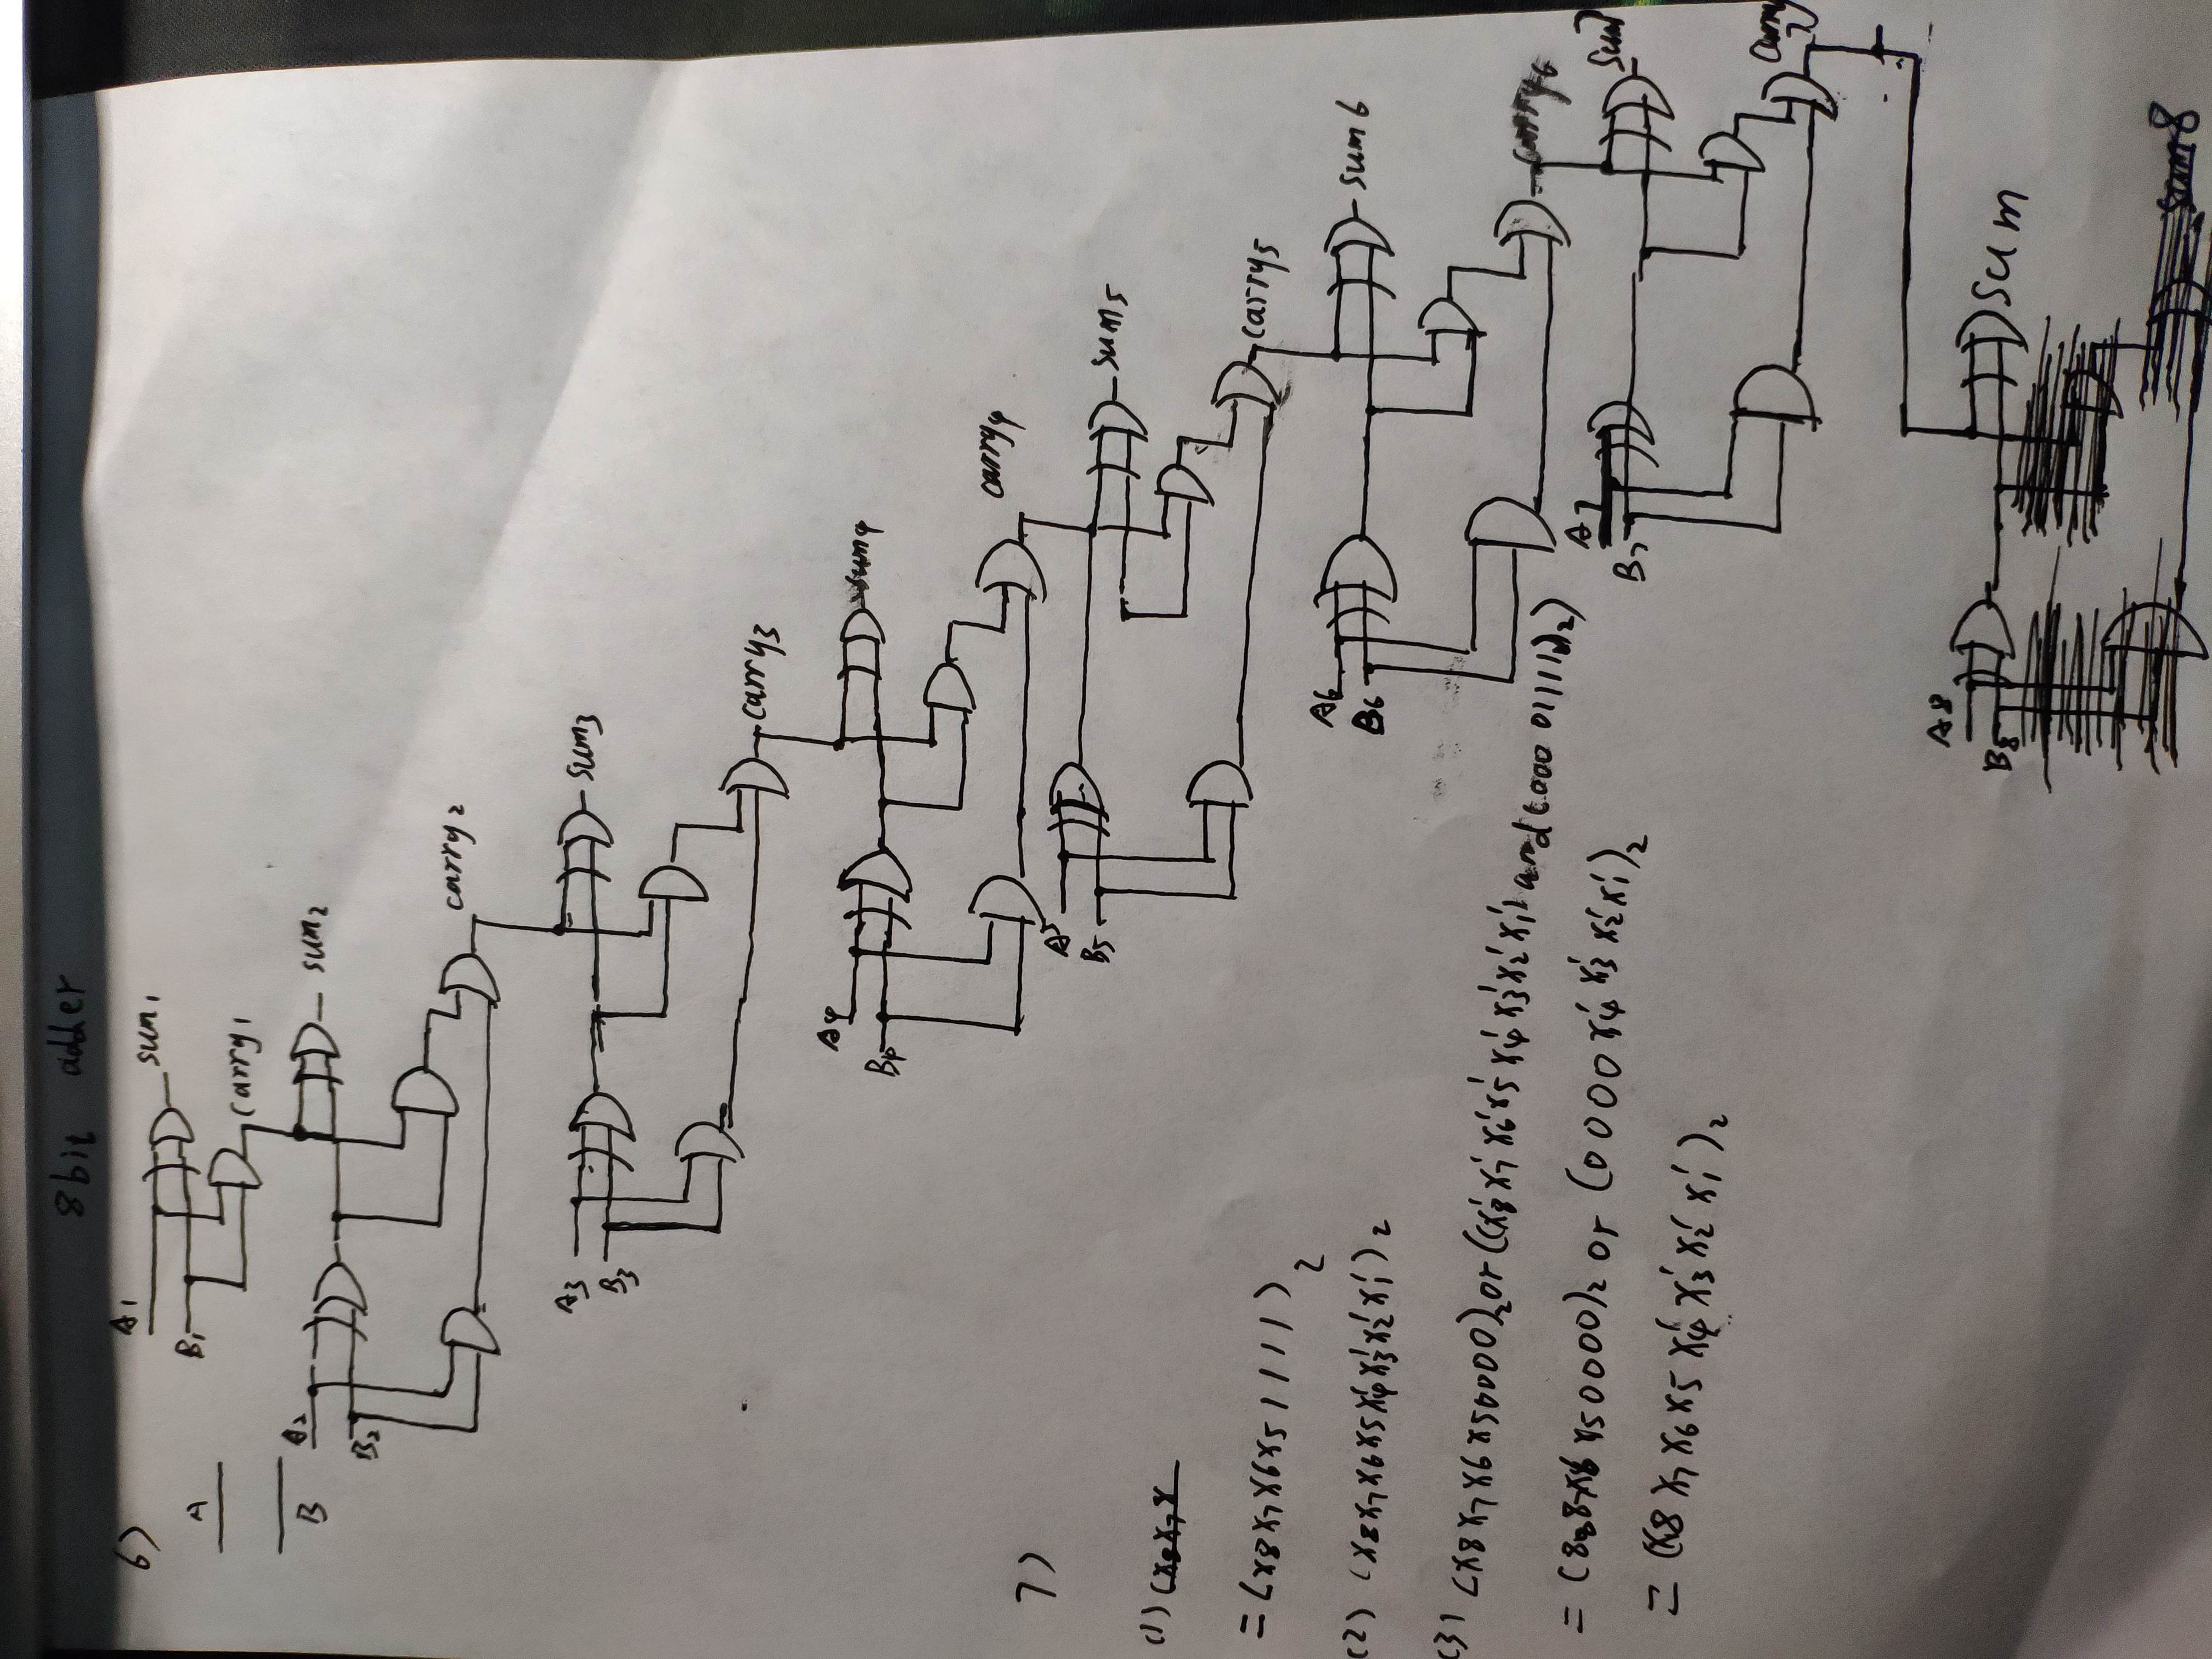 8bit adder
6)
A
B
A1
B1
sum1
carry1
A2
B2
sum2
carry2
A3
B3
sum3
carry3
A4
B4
sum4
carry4
A5
B5
sum5
carry5
A6
B6
sum6
carry6
A7
B7
sum7
carry7
A8
B8
sum
sum8
7)
(1) (x8x7x
= (x8x7x6x51111)2
(2) (x8x7x6x5x4'x3'x2'x1')2
(3) (x8x7x6x50000)2or((x8'x7'x6'x5'x4'x3'x2'x1')and(0000 01111)2)
x50000)2 or (0000x4'x3'x2'x1')2
= (x8x7x6x5x4'x3'x2'x1')2